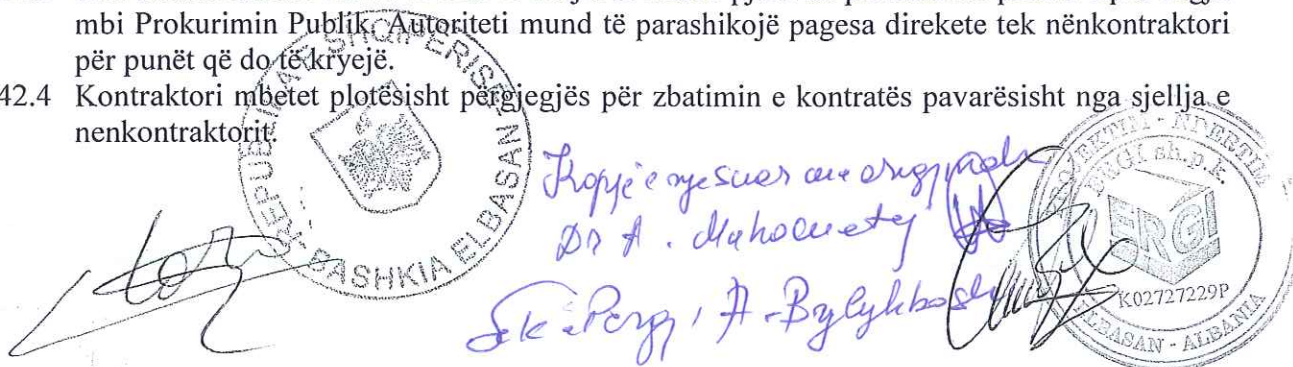 mbi Prokurimin Publik. Autoriteti mund të parashikojë pagesa direkete tek nënkontraktori
për punët që do të kryejë.
42.4 Kontraktori mbetet plotësisht përgjegjës për zbatimin e kontratës pavarësisht nga sjellja e
nenkontraktorit.
REPUBLIKA E SHQIPERISE
BASHKIA ELBASAN
Kopje e njesuar me
Dr A.
A. Bylykbashi
NDERTIM
ERGI sh.p.k.
ERGI
K02727229P
ELBASAN - ALBANIA